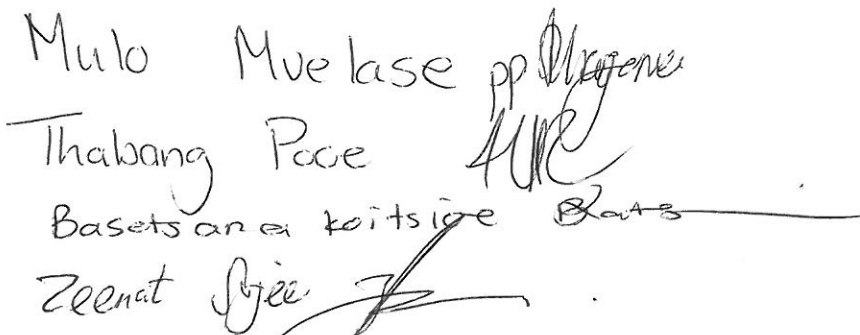 Mulo Mvelase pp
Thabang Pooe
Basetsana Koitsioe
Zeenat Sujee